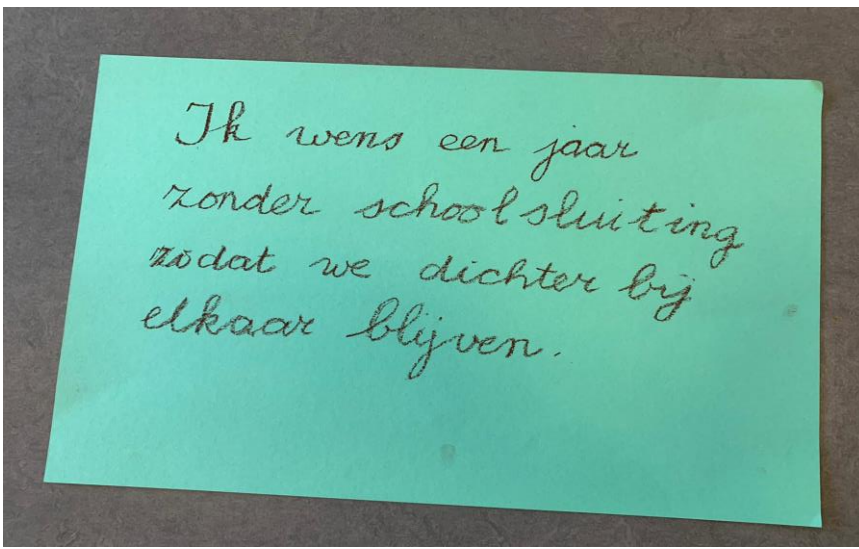 Ik wens een jaar
zonder schoolsluiting
zodat we dichter bij
elkaar blijven.